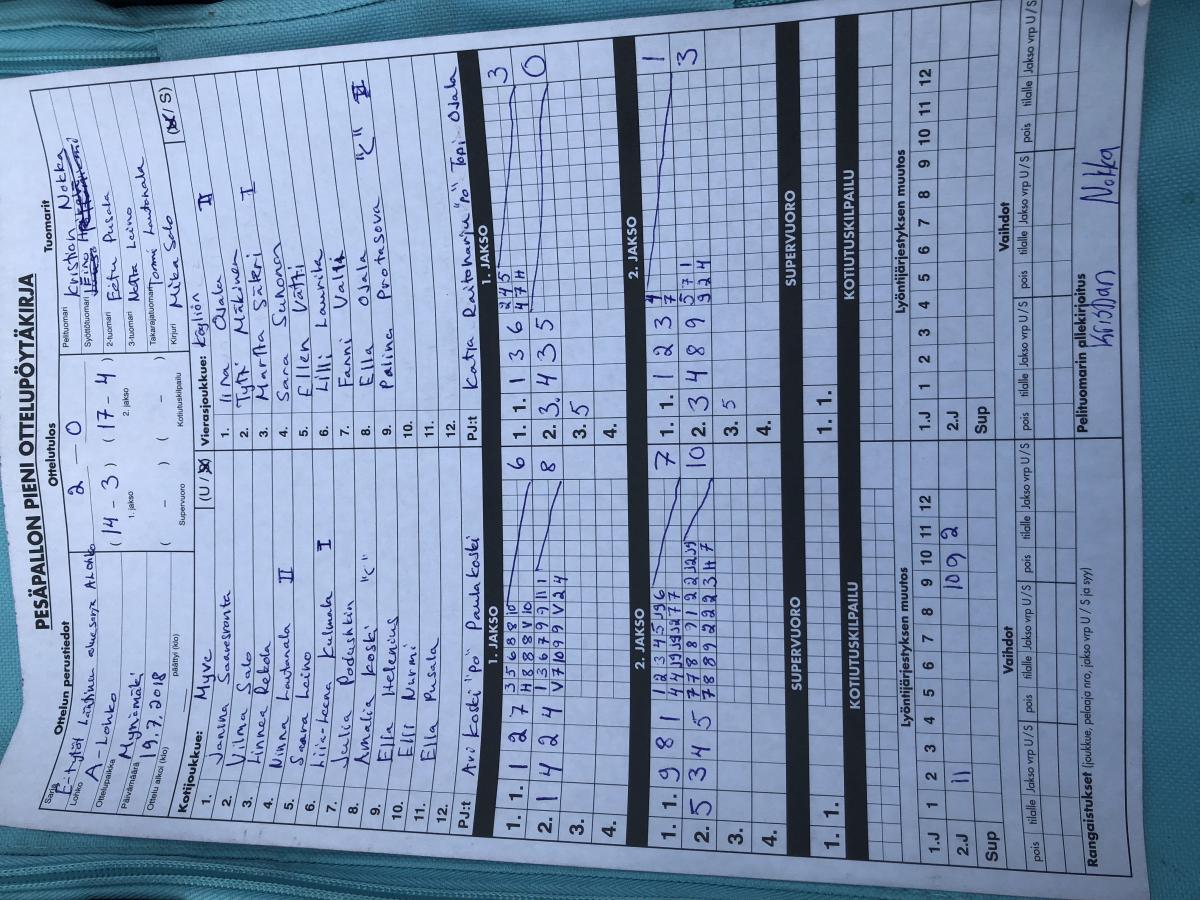 PESÄPALLON PIENI OTTELUPÖYTÄKIRJA
Ottelun perustiedot
Ottelutulos
Tuomarit
Sarja
E-tytöt Läntinen aluesarja A-lohko
Lohko
A-Lohko
Ottelupaikka
Mynämäki
Päivämäärä
19.7.2018
Ottelu alkoi (klo)
päättyi (klo)
2 – 0
( 14 – 3 ) ( 17 – 4 )
1. jakso 2. jakso
( – ) ( – )
Supervuoro Kotiutuskilpailu
Pelituomari Kristian Nokka
Syöttötuomari Eino
2-tuomari Eetu Pusala
3-tuomari Netta Laino
Takarajatuomari Tommi Lautonala
Kirjuri Mika Salo
Kotijoukkue: Myve (U /
1. Janina Saaresranta
2. Vilma Salo
3. Linnea Rekola
4. Ninna Lautanala II
5. Saana Laino
6. Liia-Leena Kulmala I
7. Juulia
8. Amalia Koski "C"
9. Ella Helenius
10. Elli Nurmi
11. Ella Pusala
12.
PJ:t Arvi Koski "PO" Paula Koski
Vierasjoukkue: Köyliön / S)
1. Iina Ojala II
2. Tyti Mäkinen
3. Martta Säkri I
4. Sara Sunonen
5. Ellen Vätti
6. Lilli Laurila
7. Fanni Valli
8. Ella Ojala "C"
9. Polina Protasova
10.
11.
12.
PJ:t Katja Raitoharju "PO" Topi Ojala
1. JAKSO
1. 1. 1 2 7 3 5 6 8 8 10 6
H 8 8 8 V 10
2. 1 4 2 4 1 3 6 7 9 9 11 1 8
V 7 10 9 9 V 2 4
3.
4.
1. JAKSO
1. 1. 1 3 6 2 4 5 3
4 7 H
2. 3. 4 3 5 0
3. 5
4.
2. JAKSO
1. 1. 9 8 1 1 2 3 4 5 J9 6 7
4 4 J9 J9 J2 7 7
2. 5 3 4 5 7 7 8 8 9 1 2 2 J2 J9 10
7 8 8 9 2 2 2 3 H 7
3.
4.
2. JAKSO
1. 1. 1 2 3 4 1
7
2. 3 4 8 9 5 7 1 3
9 2 4
3. 5
4.
SUPERVUORO
1. 1.
SUPERVUORO
1. 1.
KOTIUTUSKILPAILU
KOTIUTUSKILPAILU
Lyöntijärjestyksen muutos
1.J 1 2 3 4 5 6 7 8 9 10 11 12
2.J 11 10 9 2
Sup
Lyöntijärjestyksen muutos
1.J 1 2 3 4 5 6 7 8 9 10 11 12
2.J
Sup
Vaihdot
pois tilalle Jakso vrp U / S pois tilalle Jakso vrp U / S pois tilalle Jakso vrp U / S
Vaihdot
pois tilalle Jakso vrp U / S pois tilalle Jakso vrp U / S pois tilalle Jakso vrp U / S
Rangaistukset (joukkue, pelaaja nro, jakso vrp U / S ja syy)
Pelituomarin allekirjoitus
Kristian Nokka